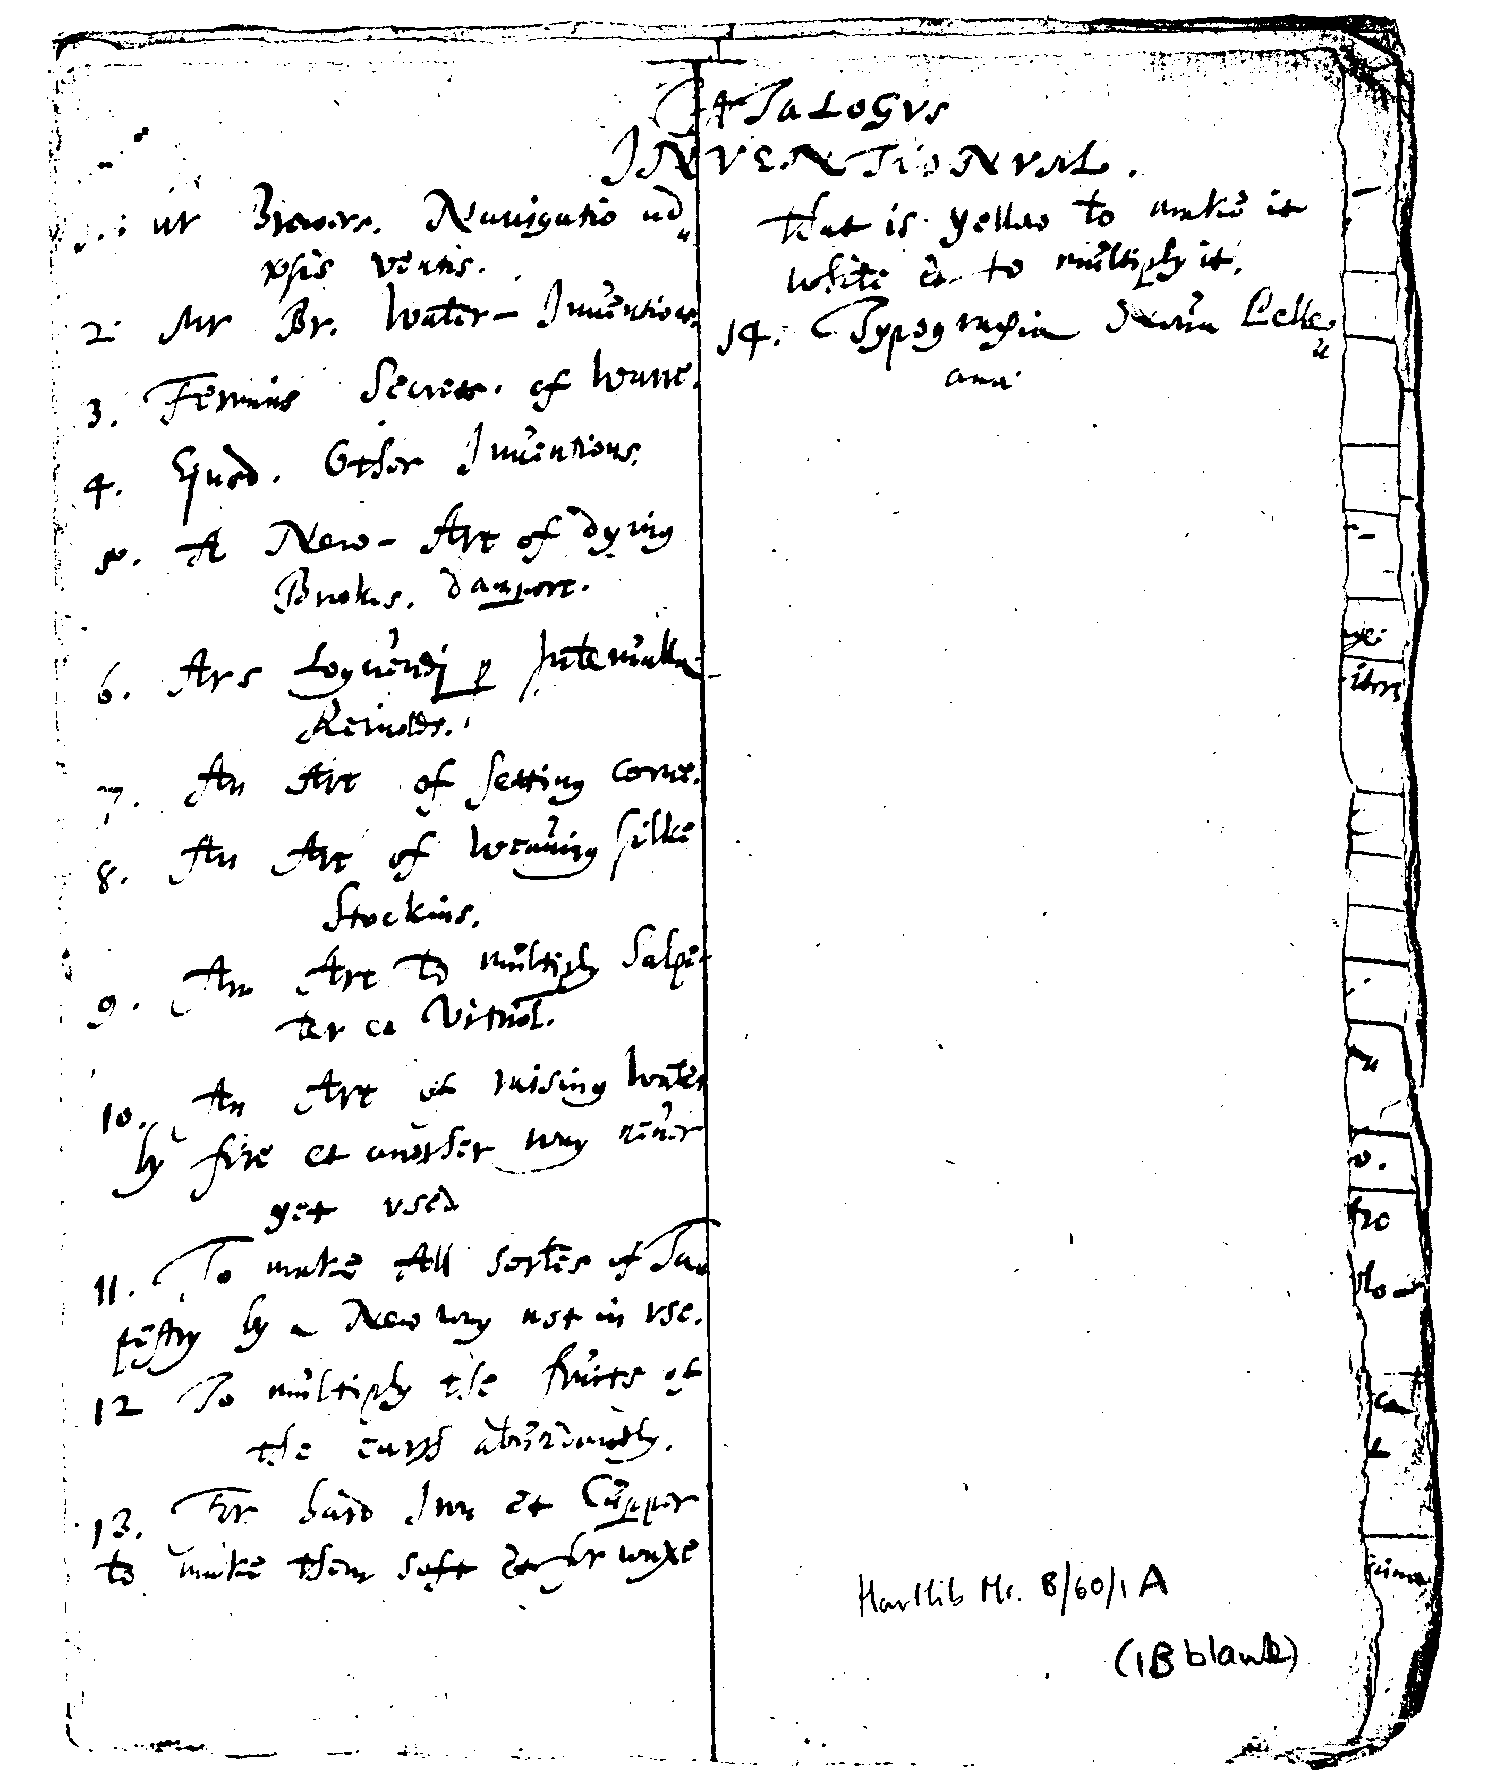 CATALOGVS
INVENTIONVM.
1. Mr Brewers. Navigatio ad
ipsis ventis.
2. Mr Br. Water-Inventions.
3. Secrets. of Warre.
4. Ejusd. Other Inventions.
5. A New-Art of dying
6. Ars Loquendi p Intervalla
Reinolds.
7. An Art of setting Corne.
8. An Art of weaving silke
Stockins.
9. An Art to multiply Salpe-
ter et Vitriol.
10. An Art of raising water
by fire et another way never
yet vsed
11. To make All sortes of Tap
pestry by a New way not in vse.
12 To multiply the fruits of
the earth abundantly.
13. For hard Iron et Cupper
to make them soft et for waxe
that is yellow to make it
white et to multiply it.
14. Typographia
ana
Hartlib Ms. 8/60/1A
(1B blank)